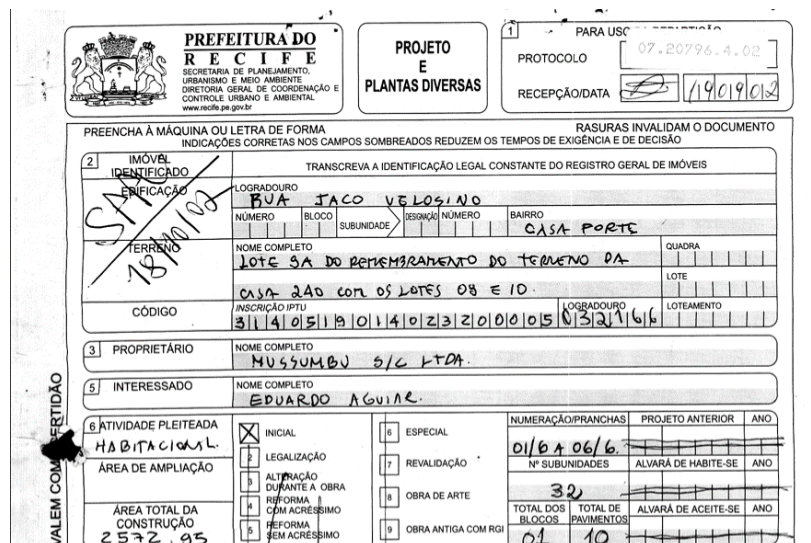 PREFEITURA DO
RECIFE
SECRETARIA DE PLANEJAMENTO,
URBANISMO E MEIO AMBIENTE
DIRETORIA GERAL DE COORDENAÇÃO E
CONTROLE URBANO E AMBIENTAL
www.recife.pe.gov.br
PROJETO
E
PLANTAS DIVERSAS
1 PARA USO
PROTOCOLO 07.20796.4.02
RECEPÇÃO/DATA
PREENCHA À MÁQUINA OU LETRA DE FORMA RASURAS INVALIDAM O DOCUMENTO
INDICAÇÕES CORRETAS NOS CAMPOS SOMBREADOS REDUZEM OS TEMPOS DE EXIGÊNCIA E DE DECISÃO
2 IMÓVEL IDENTIFICADO TRANSCREVA A IDENTIFICAÇÃO LEGAL CONSTANTE DO REGISTRO GERAL DE IMÓVEIS
EDIFICAÇÃO
LOGRADOURO
RUA JACO VELOSINO
NÚMERO BLOCO SUBUNIDADE DESIGNAÇÃO NÚMERO BAIRRO
CASA FORTE
18/10/02
TERRENO
NOME COMPLETO QUADRA
LOTE 9A DO REMEMBRAMENTO DO TERRENO DA
LOTE
CASA 240 COM OS LOTES 08 E 10.
CÓDIGO INSCRIÇÃO IPTU LOGRADOURO LOTEAMENTO
3140519014023200005 032166
3 PROPRIETÁRIO NOME COMPLETO
MUSSUMBU S/C LTDA.
5 INTERESSADO NOME COMPLETO
EDUARDO AGUIAR.
6 ATIVIDADE PLEITEADA
HABITACIONAL
ÁREA DE AMPLIAÇÃO
ÁREA TOTAL DA
CONSTRUÇÃO
2572,95
X INICIAL
2 LEGALIZAÇÃO
3 ALTERAÇÃO
DURANTE A OBRA
4 REFORMA
COM ACRÉSSIMO
5 REFORMA
SEM ACRÉSSIMO
6 ESPECIAL
7 REVALIDAÇÃO
8 OBRA DE ARTE
9 OBRA ANTIGA COM RGI
NUMERAÇÃO/PRANCHAS PROJETO ANTERIOR ANO
01/6 A 06/6.
Nº SUBUNIDADES ALVARÁ DE HABITE-SE ANO
32
TOTAL DOS BLOCOS TOTAL DE PAVIMENTOS ALVARÁ DE ACEITE-SE ANO
01 10